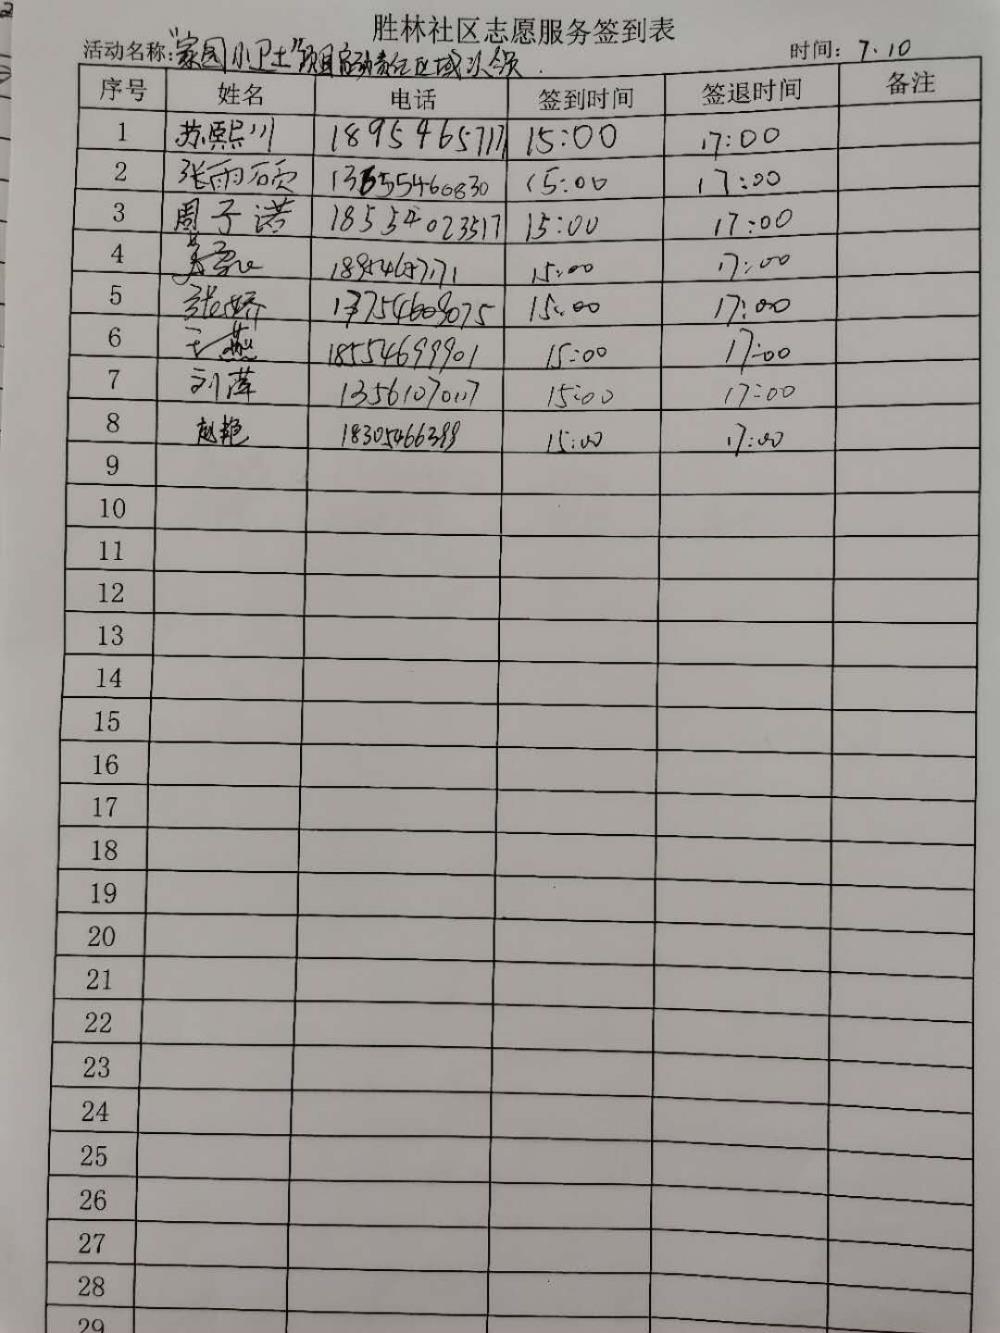 胜林社区志愿服务签到表
活动名称:"家园小卫士"项目启动责任区域认领. 时间: 7.10
序号 姓名 电话 签到时间 签退时间 备注
1 苏熙川 18954657171 15:00 17:00
2 张雨硕 13655460830 15:00 17:00
3 周子诺 18554023517 15:00 17:00
4 18954687171 15:00 17:00
5 张娇 13754609075 15:00 17:00
6 王燕 18554699901 15:00 17:00
7 刘萍 13561070017 15:00 17:00
8 赵艳 18305466399 15:00 17:00
9
10
11
12
13
14
15
16
17
18
19
20
21
22
23
24
25
26
27
28
29